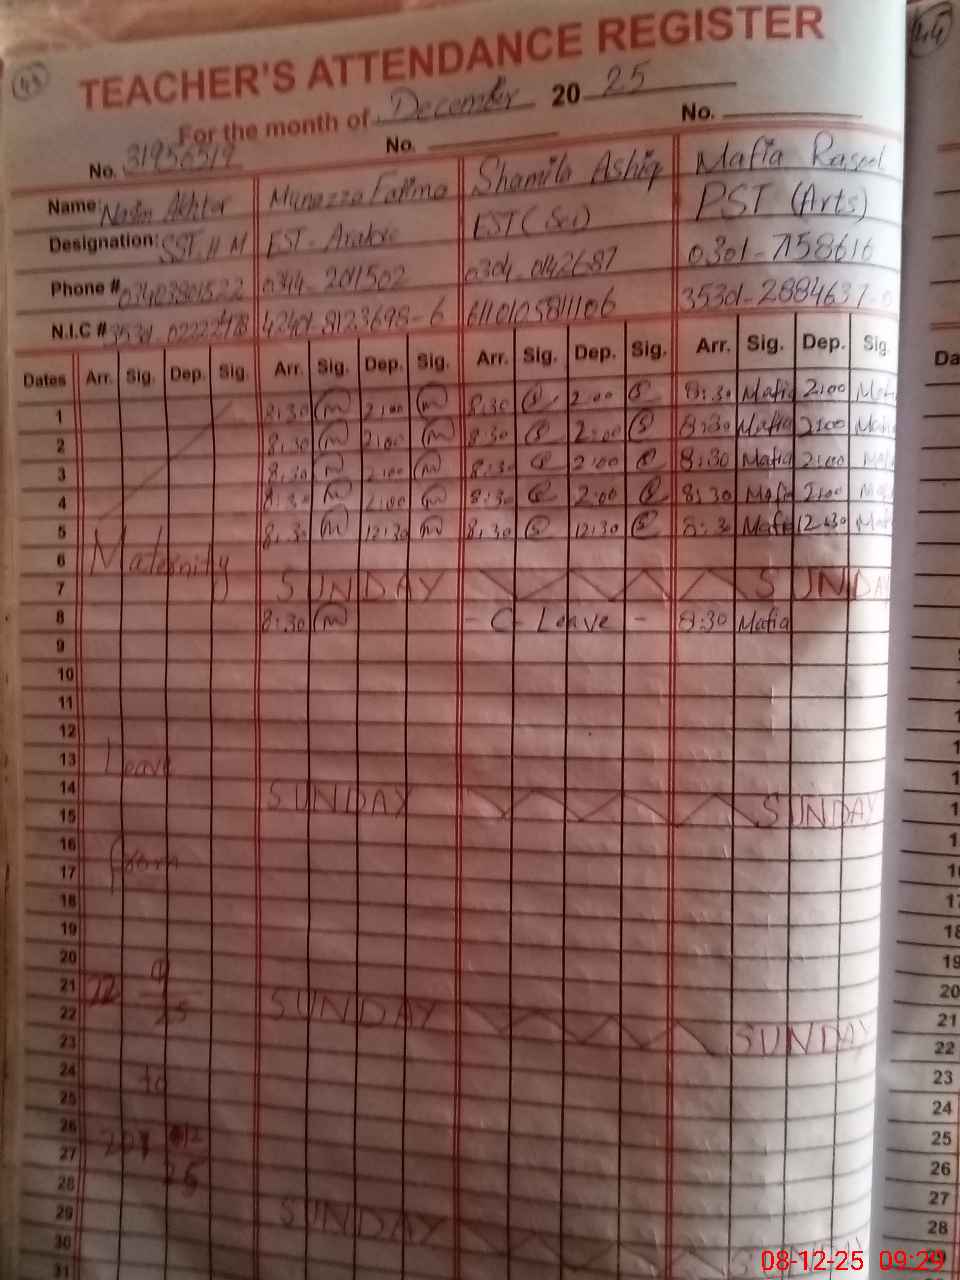 43
44
TEACHER'S ATTENDANCE REGISTER
For the month of December 20 25
No. 31956519 No. No.
Name: Nasim Akhtar Munazza Fatima Shamila Ashiq Mafia Rasool
Designation: SST. H M EST - Arabic EST (Sci) PST (Arts)
Phone # 03403801522 0344-2011502 0304-0142687 0301-7158616
N.I.C # 42401-8123698-6 6110105811106 35301-2884637-0
Dates Arr. Sig. Dep. Sig. Arr. Sig. Dep. Sig. Arr. Sig. Dep. Sig. Arr. Sig. Dep. Sig.
1 8:30 m 2:00 m 8:30 S 2:00 S 8:30 Mafia 2:00
2 8:30 m 2:00 m 8:30 S 2:00 S 8:30 Mafia 2:00
3 8:30 m 2:00 m 8:30 S 2:00 S 8:30 Mafia 2:00
4 8:30 m 2:00 m 8:30 S 2:00 S 8:30 Mafia 2:00
5 8:30 m 12:30 m 8:30 S 12:30 S 8:30 Mafia 12:30
6 Maternity
7 SUNDAY SUNDAY
8 8:30 m - C - Leave - 8:30 Mafia
9
10
11
12
13 Leave
14 SUNDAY
15 SUNDAY
16
17 from
18
19
20
21 22 9
22 25 SUNDAY
23 SUNDAY
24 to
25
26
27 12
28 25
29 SUNDAY
30 SUNDAY
31
08-12-25 09:29